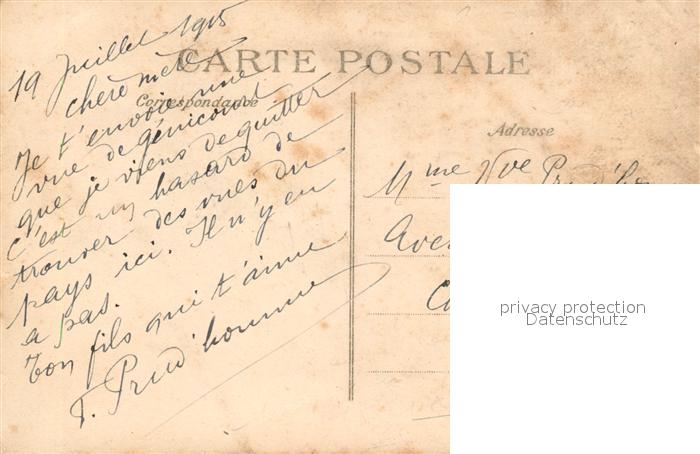 CARTE POSTALE
Correspondance
19 Juillet 1915
chère mère
Je t'envoie une
vue de Génicourt
que je viens de quitter
C'est un hasard de
trouver des vues du
pays ici. Il n'y en
a pas.
Ton fils qui t'aime
T. Prud'homme
Adresse
Mme Vve
privacy protection
Datenschutz